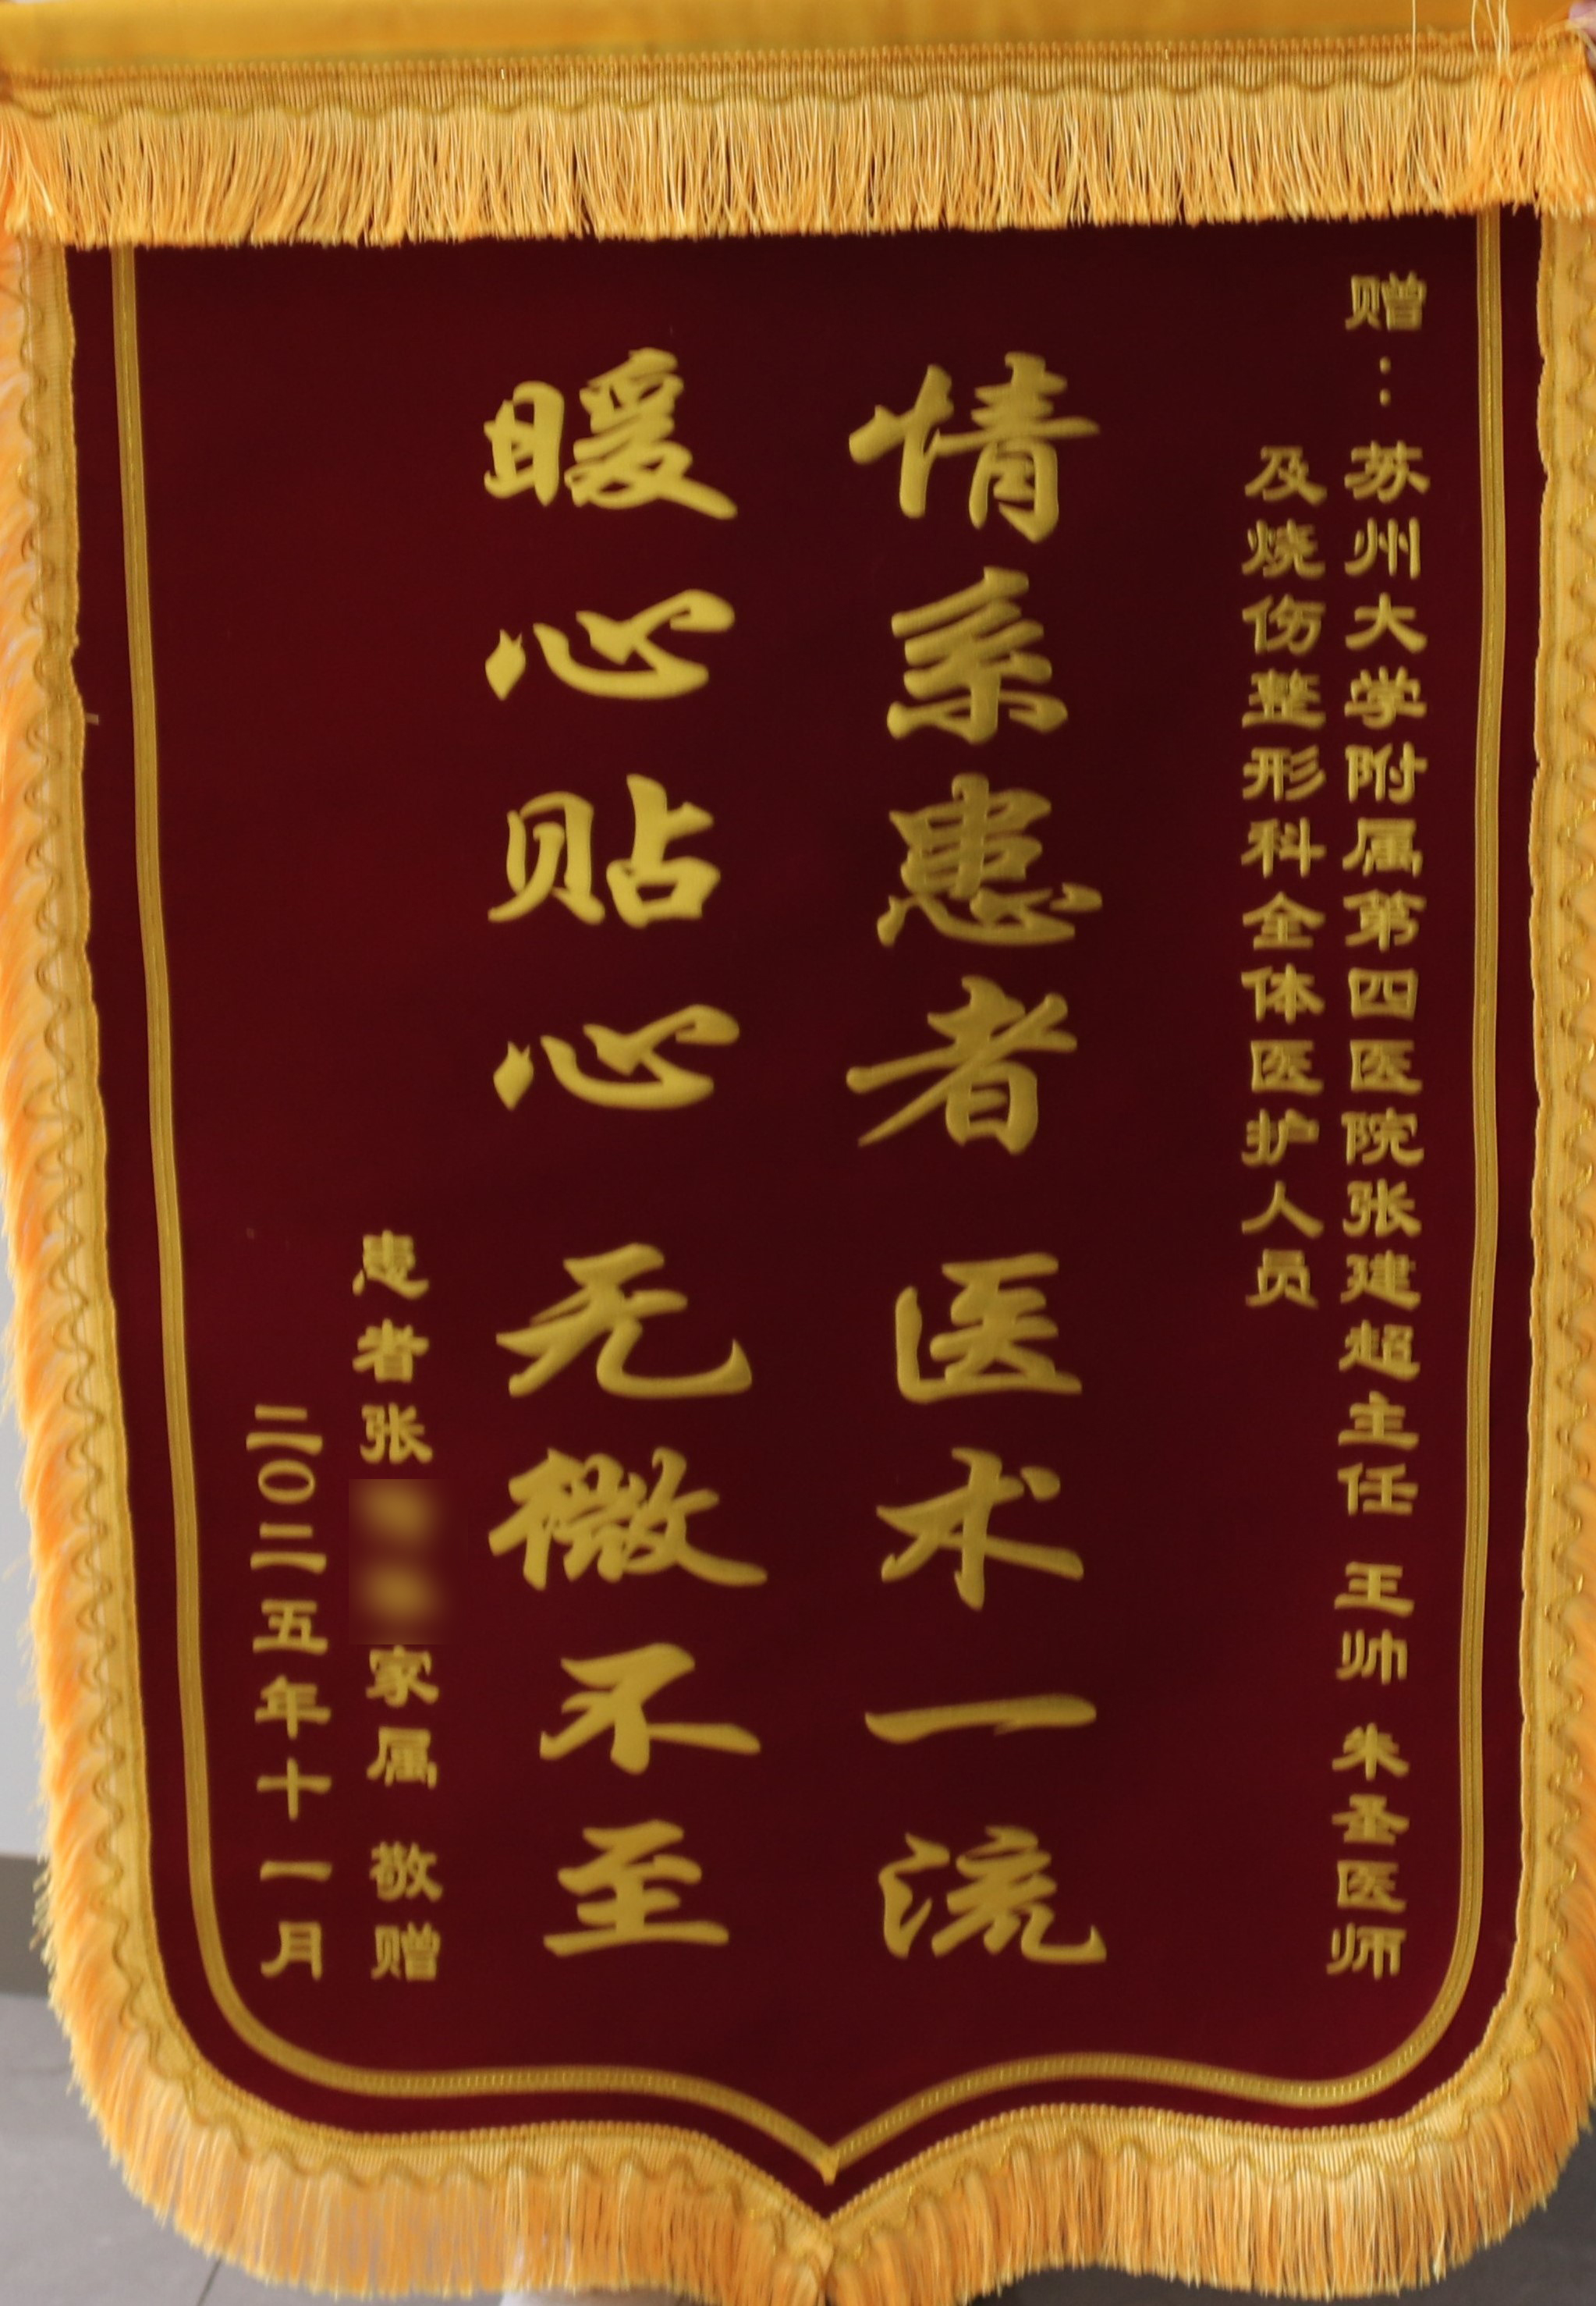 赠：苏州大学附属第四医院张建超主任 王帅 朱圣医师
及烧伤整形科全体医护人员
情系患者 医术一流
暖心贴心 无微不至
患者张 家属 敬赠
二〇二五年十一月